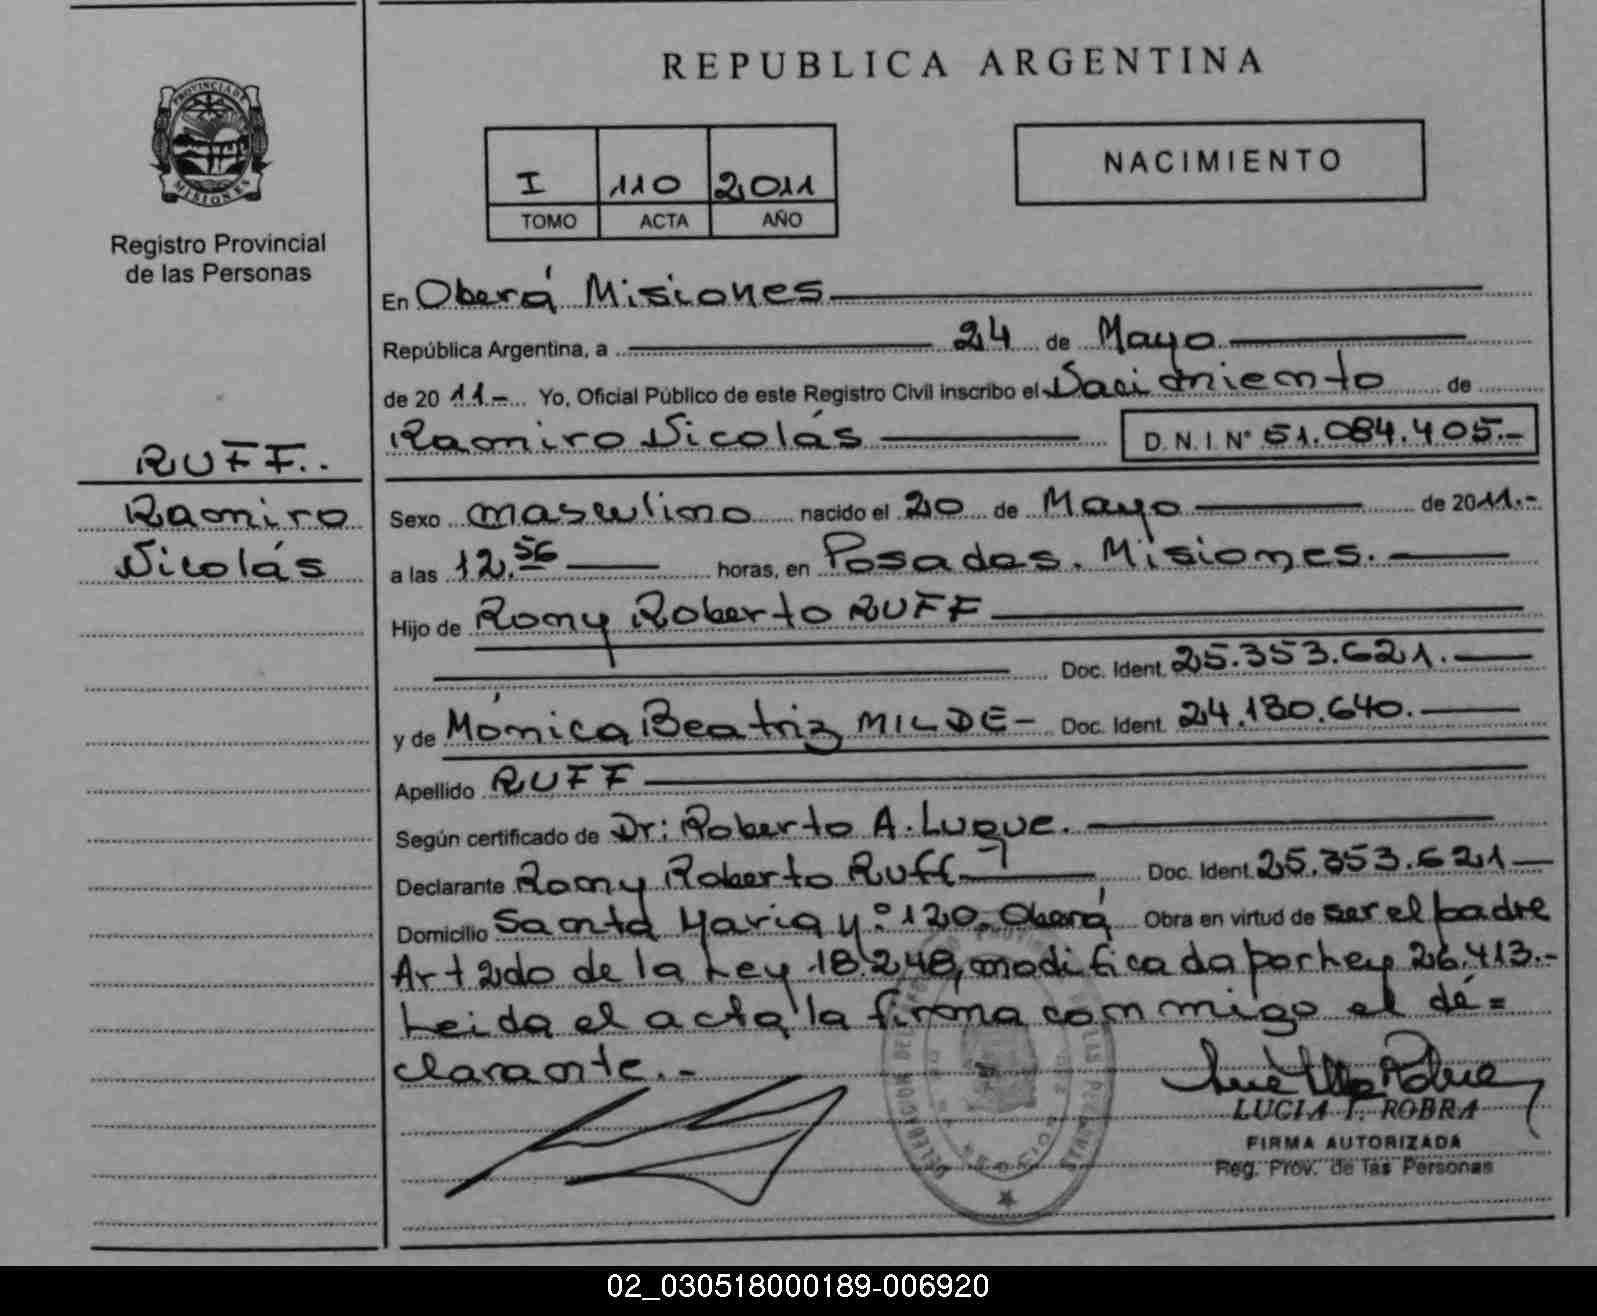 REPUBLICA ARGENTINA
PROVINCIA DE
MISIONES
Registro Provincial
de las Personas
I 110 2011
TOMO ACTA AÑO
NACIMIENTO
En Oberá Misiones
República Argentina, a 24 de Mayo
de 2011.- Yo, Oficial Público de este Registro Civil inscribo el Nacimiento de
Ramiro Nicolás D.N.I. N° 51.084.405.-
RUFF..
Ramiro
Nicolás
Sexo masculino nacido el 20 de Mayo de 2011.-
a las 12.56 horas, en Posadas. Misiones.
Hijo de Romy Roberto RUFF
Doc. Ident. 25.353.621.
y de Mónica Beatriz MILDE- Doc. Ident. 24.180.640.
Apellido RUFF
Según certificado de Dr: Roberto A. Luque.
Declarante Romy Roberto Ruff Doc. Ident. 25.353.621
Domicilio Santa María N:° 120. Oberá Obra en virtud de ser el padre
Art 2do de la Ley 18.248, modificada por Ley 26.413.-
Leida el acta la firma conmigo el de=
clarante.-
LUCIA F. ROBRA
FIRMA AUTORIZADA
Reg. Prov. de las Personas
02_030518000189-006920